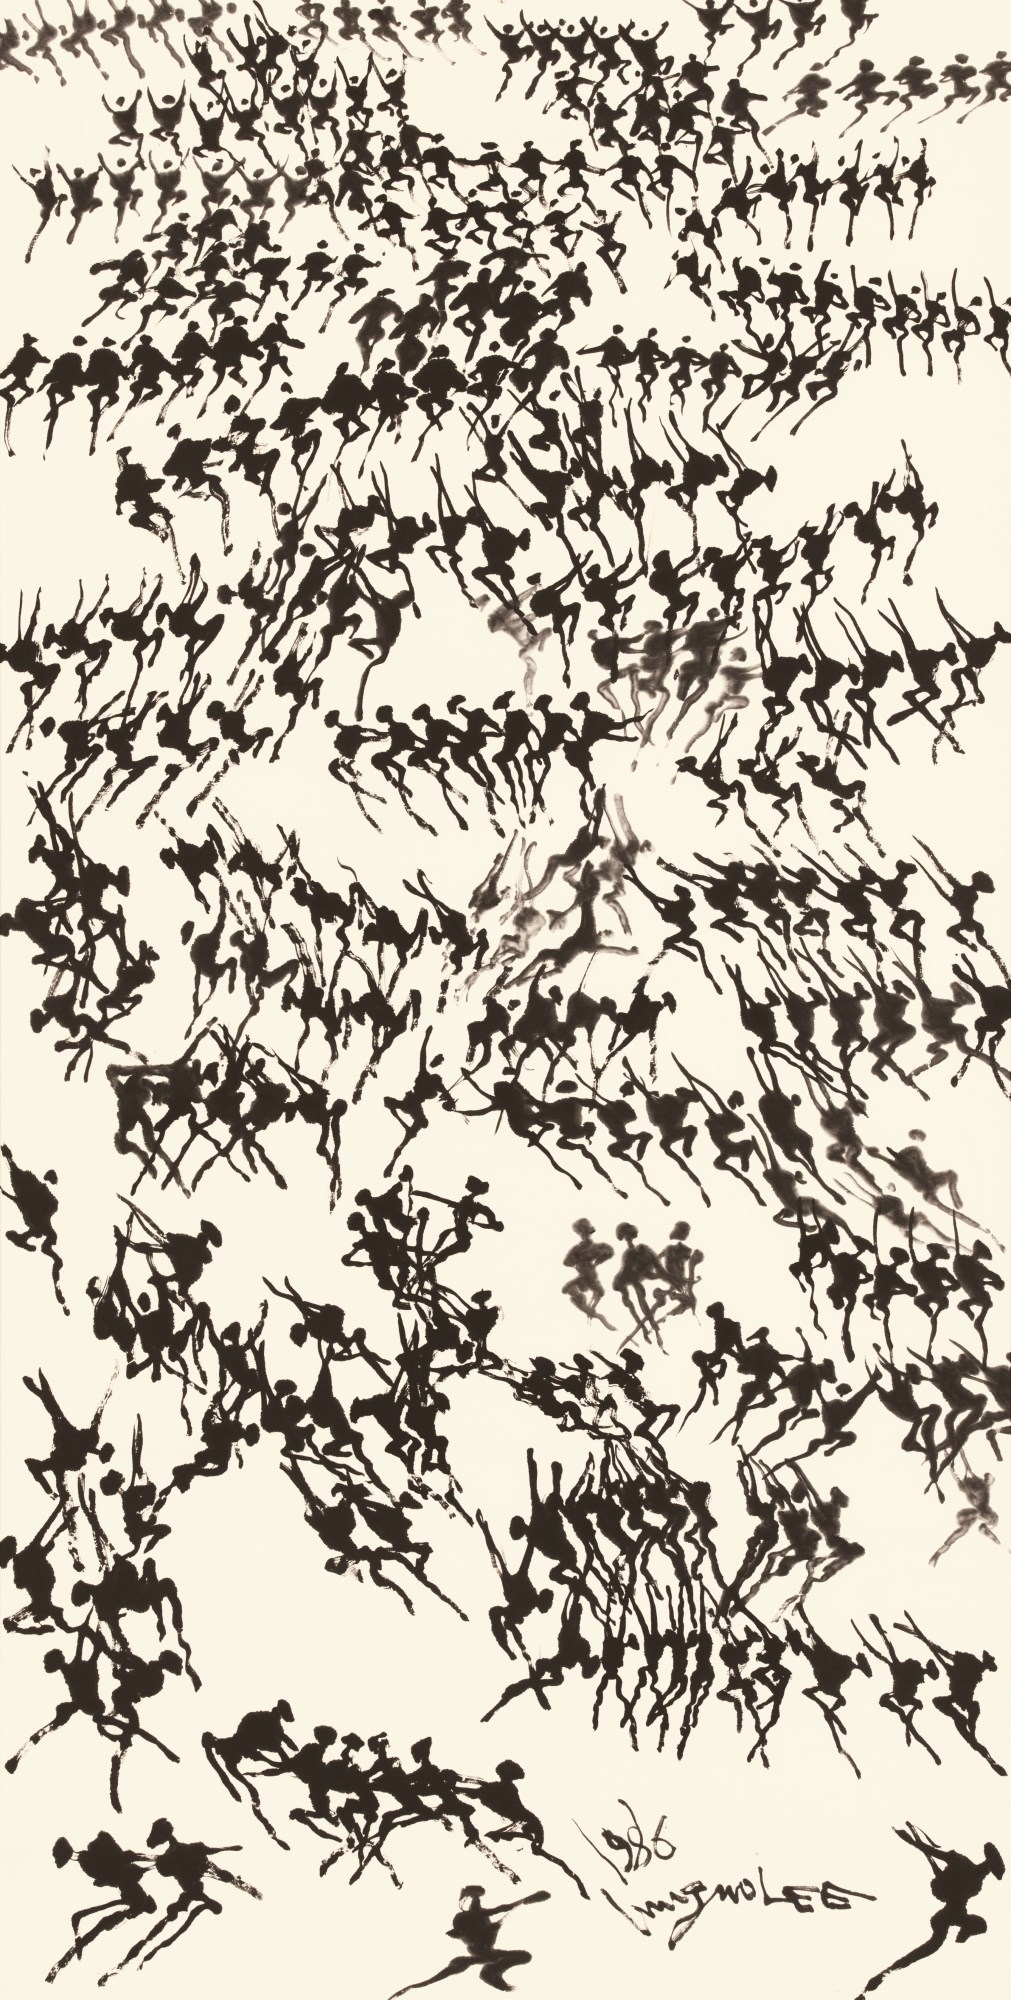 1986
UngnoLEE